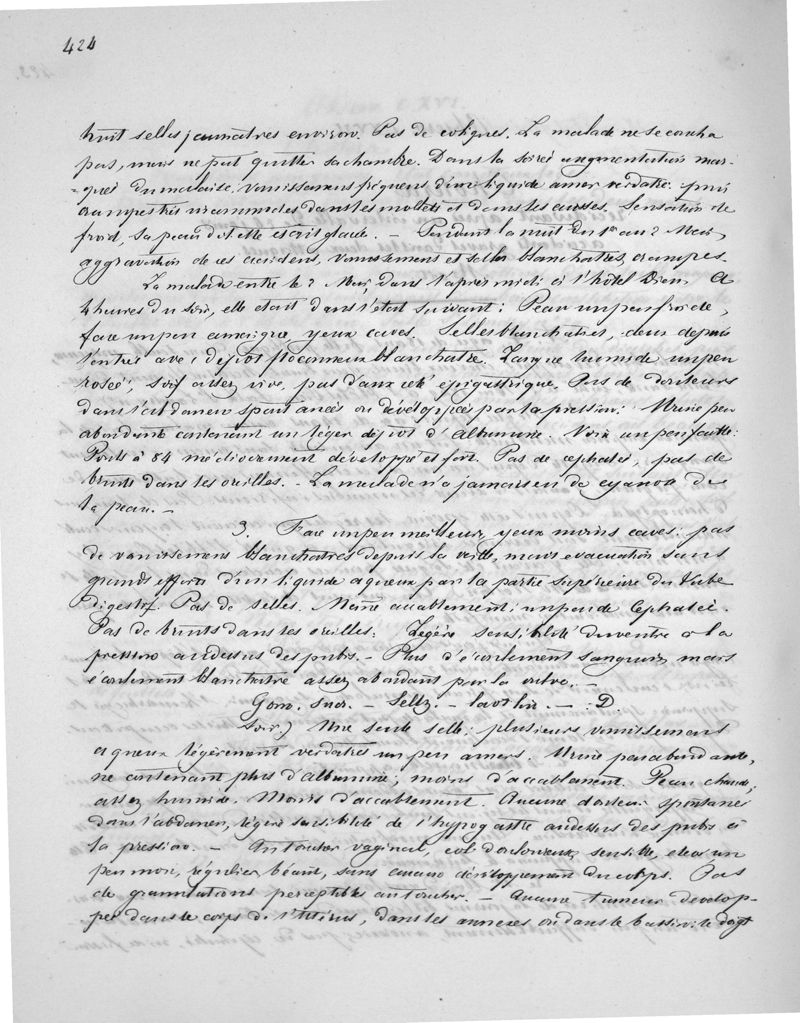 424
huit selles jaunâtres environ. Pas de coliques. La malade ne se coucha
pas, mais ne put quitter sa chambre. Dans la soirée augmentation mar-
-quée du malaise; vomissemens fréquens d'un liquide amer verdâtre. puis
crampes très incommodes dans les mollets et dans les cuisses. Sensation de
froid, sa peau dit elle était glacée. — Pendant la nuit du 1er au 2 Mai,
aggravation de ces accidens, vomissement et selles blanchâtres, crampes.
La malade entre le 2 Mai, dans l'après midi à l'hôtel Dieu. A
4 heures du soir, elle était dans l'état suivant: Peau un peu froide,
face un peu amaigrie, yeux caves. Selles blanchatres, deux depuis
l'entrée avec dépôt floconneux blanchatre. Langue humide un peu
rosée; soif assez vive, pas d'anxiété épigastrique. Pas de douleurs
dans l'abdomen spontanées ou développées par la pression: Urine peu
abondante contenant un léger dépôt d'albumine. Voix un peu faible:
Pouls à 84 médiocrement développé et fort. Pas de cephalée, pas de
bruits dans les oreilles. — La malade n'a jamais eu de cyanose de
la peau. —
3. Face un peu meilleure, yeux moins caves; pas
de vomissemens blanchatres depuis la veille, mais evacuation sans
grands efforts d'un liquide aqueux par la partie supérieure du tube
digestif. Pas de selles. Même accablement; un peu de Cephalée.
Pas de bruits dans les oreilles: Légère sensibilité du ventre à la
pression au dessus des pubis. — Plus d'écoulement sanguin, mais
écoulement blanchatre assez abondant par la vulve. —
Gom. sucr. — Seltz. — lav. — :D.
Soir.) Une seule selle; plusieurs vomissemens
aqueux légèrement verdatres un peu amers. Urine peu abondante,
ne contenant plus d'albumine; moins d'accablement. Peau chaude,
assez humide. Moins d'accablement. Aucune douleur spontanée
dans l'abdomen, légère sensibilité de l'hypogastre au dessus des pubis à
la pression. — Au toucher vaginal, col douloureux, sensible, un
peu mou, régulier béant, sans aucun développement du corps. Pas
de granulations perceptibles au toucher. — Aucune tumeur dévelop-
pée dans le corps de l'utérus, dans les annexes ou dans le bassin; le doigt